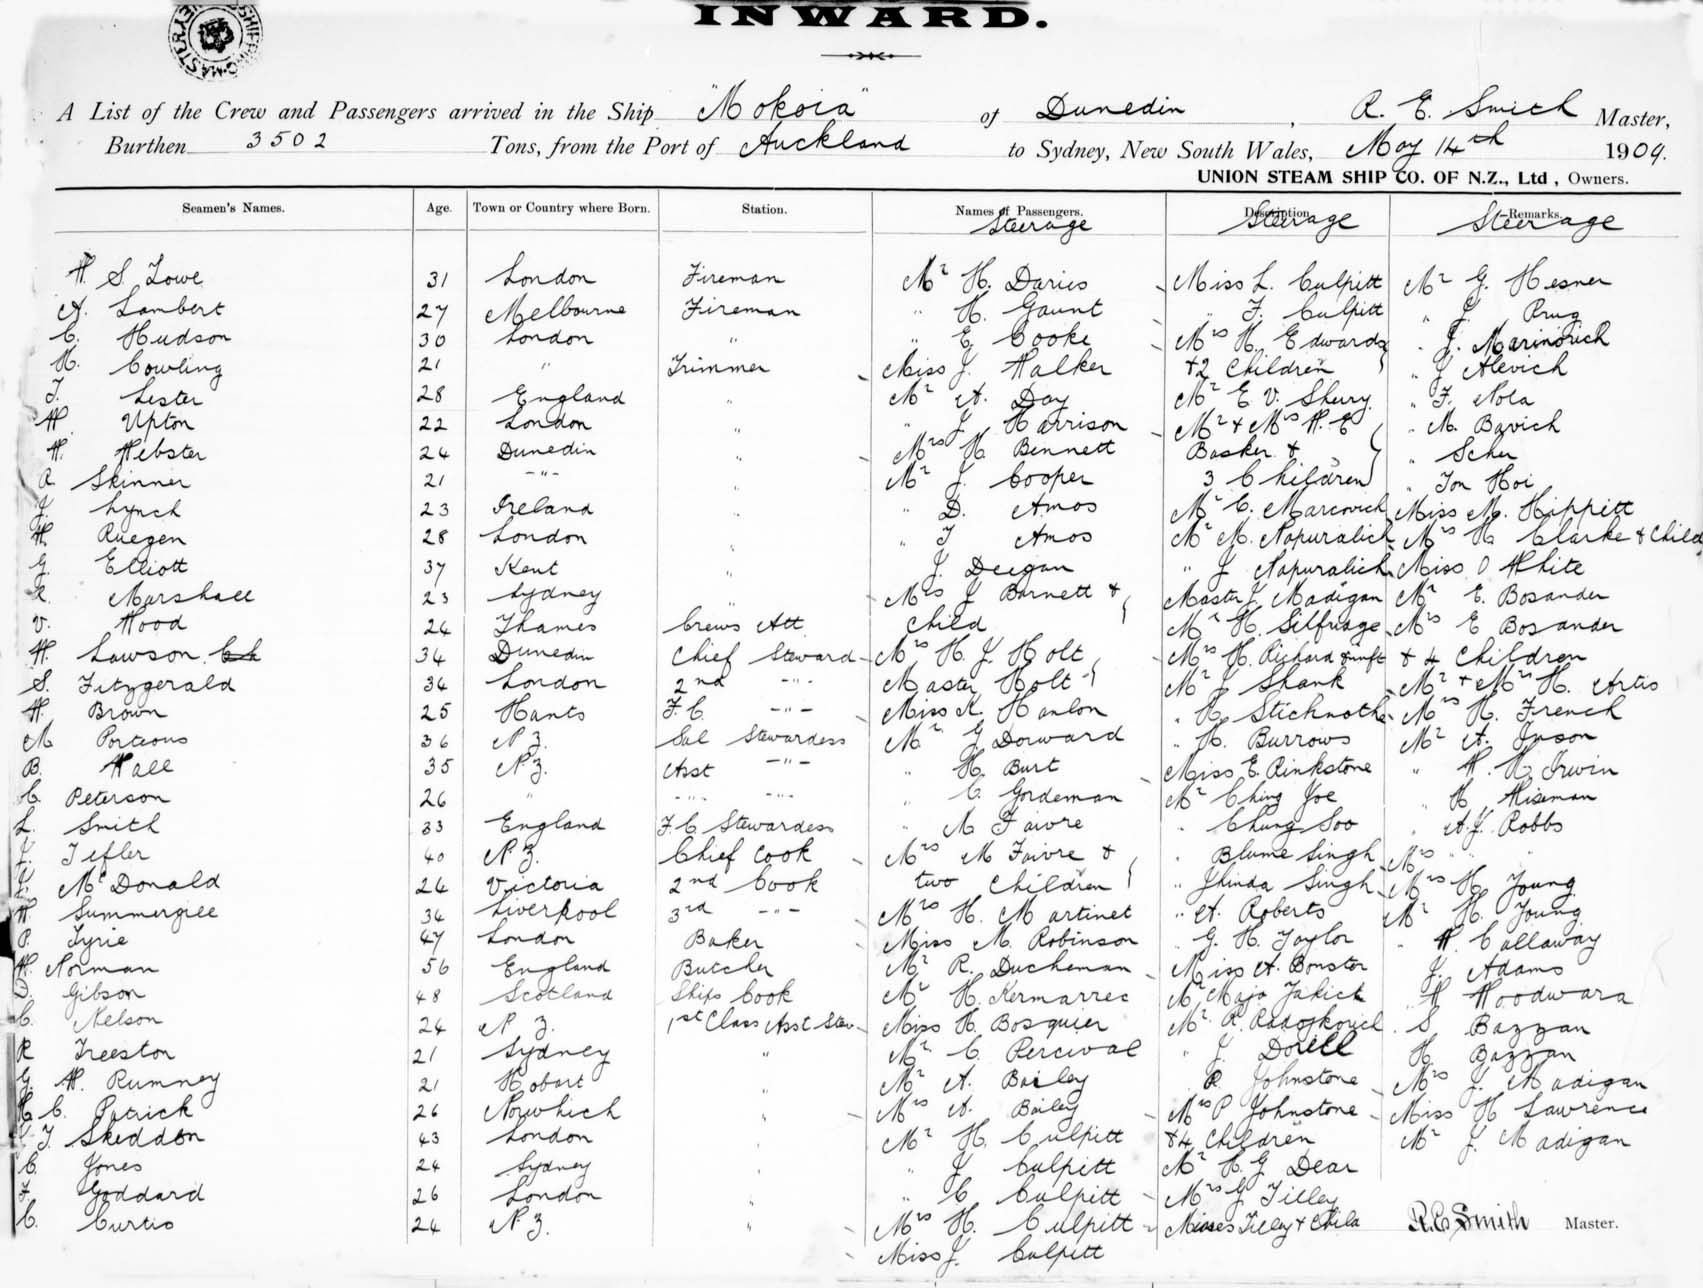 INWARD.
A List of the Crew and Passengers arrived in the Ship "Mokoia" of Dunedin, R. E. Smith Master,
Burthen 3502 Tons, from the Port of Auckland to Sydney, New South Wales, May 14th 1909.
UNION STEAM SHIP CO. OF N.Z., Ltd, Owners.
Seamen's Names. Age. Town or Country where Born. Station. Names of Passengers. Description Remarks.
Steerage Steerage Steerage
W S. Lowe 31 London Fireman Mr H. Davies Miss L. Culpitt Mr G. Hesner
A. Lambert 27 Melbourne Fireman " H. Gaunt " F. Culpitt " Prug
C. Hudson 30 London " " E. Cooke Mrs H. Edwards " J. Marinovich
H. Cowling 21 " Trimmer Miss J. Walker +2 Children " J Alevich
T. Lester 28 England " Mr A. Day Mr E V. Sherry " F. Nola
W Upton 22 London " " J Harrison Mr + Mrs W. E " M. Bavich
W. Webster 24 Dunedin " Mrs H Bennett Basker + " Scher
R Skinner 21 -"- " Mr J. Cooper 3 Children " Tom Hoi
J. Lynch 23 Ireland " " D. Amos Mr C. Marcovich Miss M. Hippitt
W. Ruegen 28 London " " T Amos Mr M. Napuralich Mrs H Clarke + Child
G. Elliott 37 Kent " J. Deegan " J Napuralich Miss O White
R. Marshall 23 Sydney " Mrs J Barnett + Master J. Madigan Mr E. Bosander
V. Wood 24 Thames Crews Att Child Mr H. Silfriage Mrs E Bosander
W. Lawson 34 Dunedin Chief Steward Mrs H. J. Holt Mrs H. Richard + inft + 4 Children
S. Fitzgerald 34 London 2nd -"- Master Holt Mr J Shank Mr + Mrs H. Artis
W. Brown 25 Hants F. C. -"- Miss K. Hanlon " H Stichnothe Mrs H. French
M Porteous 36 N Z. Sal Stewardess Mr G Dorward " H. Burrows Mr A. Juson
B. Hall 35 N Z. Asst -"- " H. Burt Miss E. Pinkstone " W. H. Irwin
C. Peterson 26 " -"- -"- " C Gordeman Mr Ching Joe " H Wiseman
L. Smith 33 England F. C Stewardess " M Faivre " Chung Soo " A. J. Robbs
J. Telfer 40 N Z. Chief Cook Mrs M Faivre + " Blume Singh Mrs " "
J. McDonald 24 Victoria 2nd Cook two Children " Jhinda Singh Mrs H Young
W Summergill 34 Liverpool 3rd -"- Mrs H. Martinet " A. Roberts Mr H. Young
P. Tyrie 47 London Baker Miss M. Robinson " G. H. Taylor " W Callaway
W. Norman 56 England Butcher Mr R. Ducheman Miss A. Bonstor J. Adams
D. Gibson 48 Scotland Ships Cook Mr H. Kermarrec Mr Majo Jakich " W Woodward
C. Nelson 24 N Z. 1st Class Asst Stew Miss H. Bosquier Mr R. Radojkovich " S Bazzan
R Treeston 21 Sydney " Mr C. Percival " J. Dorell H Bazzan
G. W. Rumney 21 Hobart " Mr A. Bailey " P. Johnstone Mrs J. Madigan
H C. Patrick 26 Norwhich " Mrs A. Bailey Mrs P Johnstone Miss H Lawrence
T. Skeddon 43 London " Mr H. Culpitt +4 Children Mr J. Madigan
C. Jones 24 Sydney " " J Culpitt Mr H. G Dear
F. Goddard 26 London " C Culpitt Mrs G Tilley
C. Curtis 24 N Z. " Mrs H. Culpitt Misses Tilley + Child R. E Smith Master.
Miss J. Culpitt